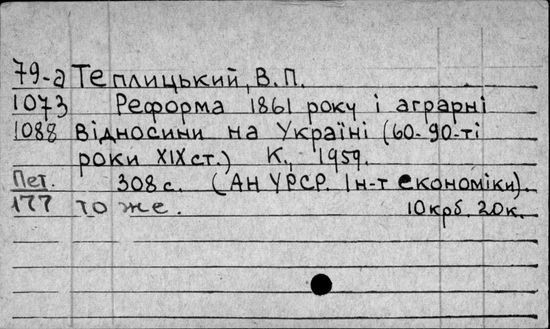 79-а Теплицький, В.П.
1073 Реформа 1861 року і аграрні
1088 Відносини на Україні (60-90-ті
роки XIX ст.) К., 1959.
Пет. 308 с. (АН УРСР. Ін-т економіки).
177 то же. 10 крб. 20 к.